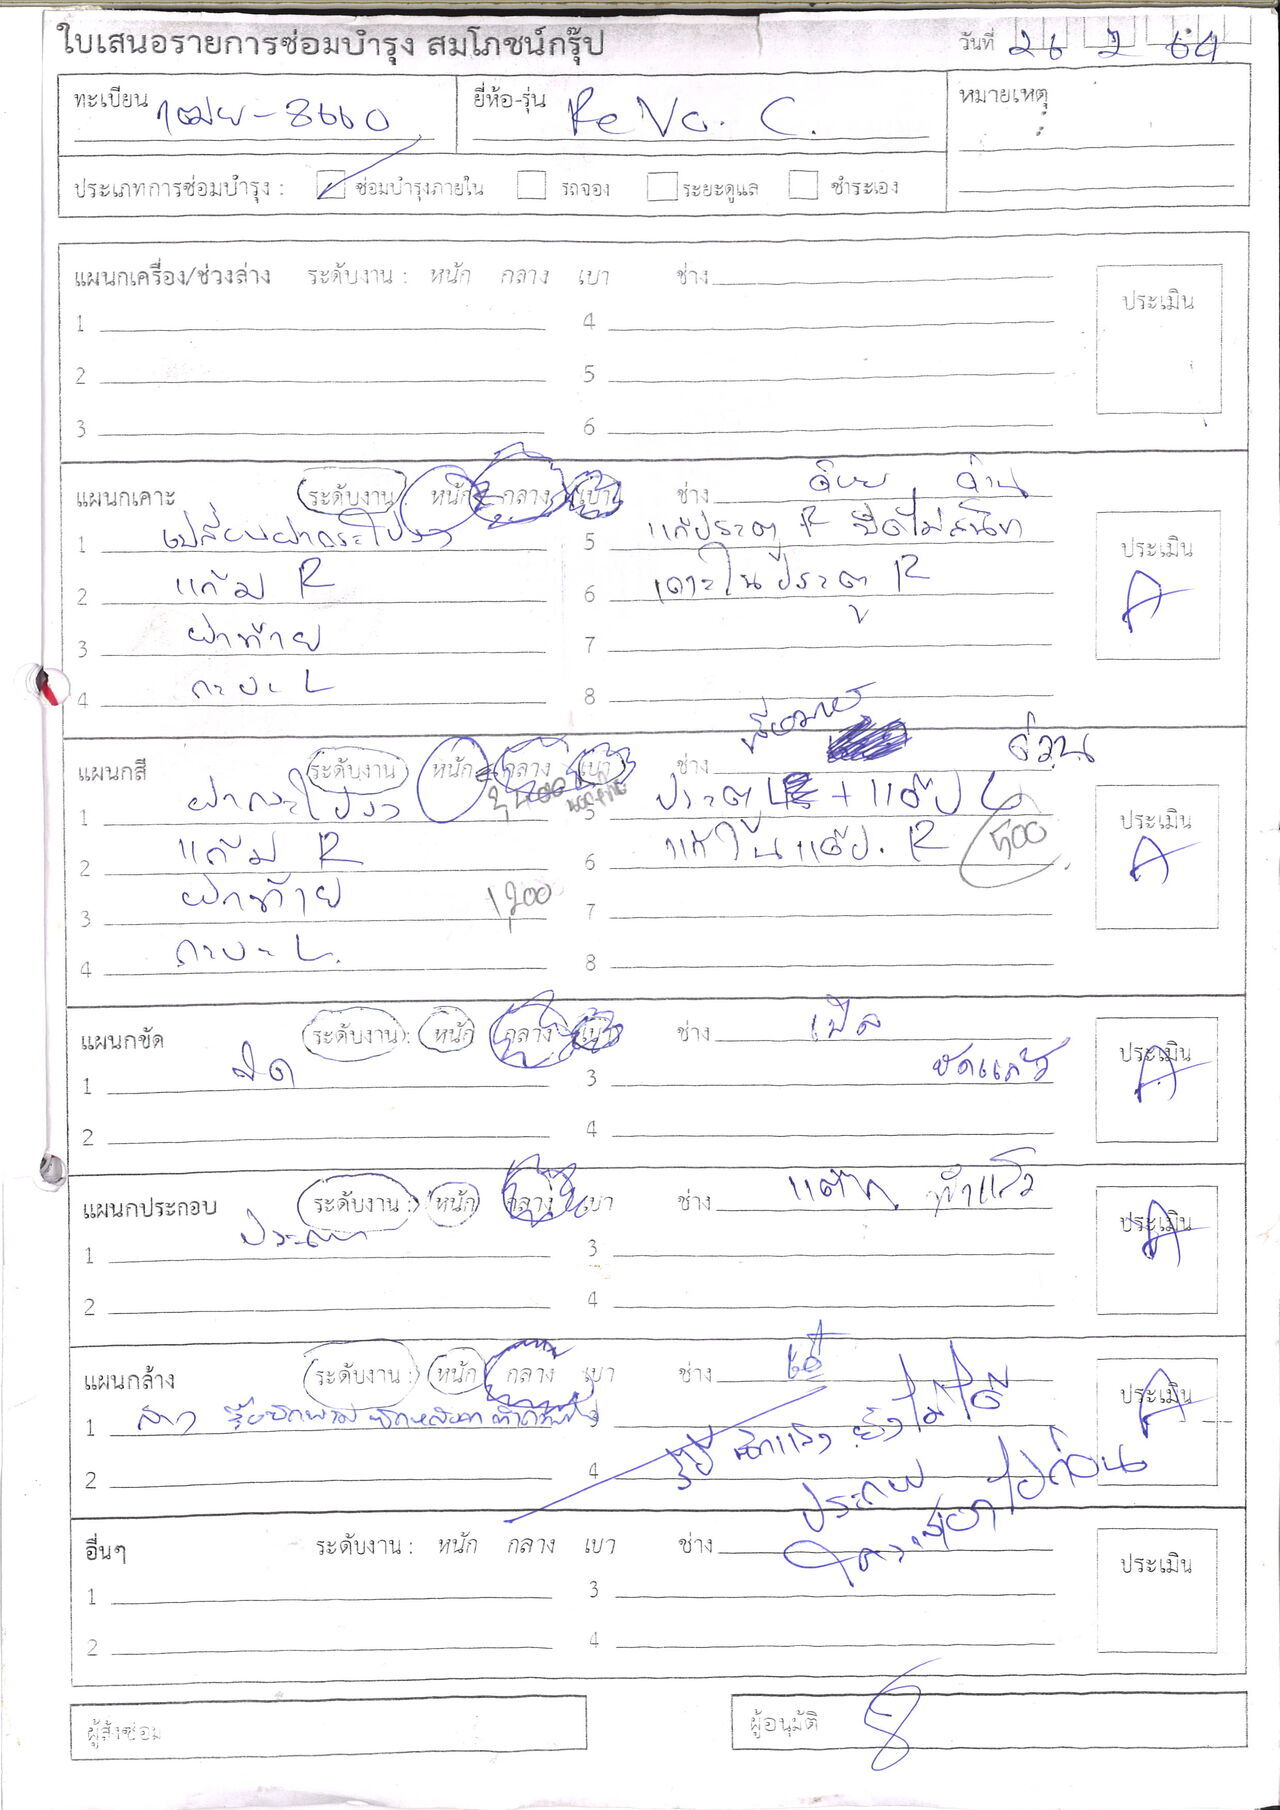 ใบเสนอรายการซ่อมบำรุง สมโภชน์กรุ๊ป วันที่ 26 2 64
ทะเบียน 1ฒย-8660 ยี่ห้อ-รุ่น ReVo. C. หมายเหตุ
ประเภทการซ่อมบำรุง : ซ่อมบำรุงภายใน รถจอง ระยะดูแล ชำระเอง
แผนกเครื่อง/ช่วงล่าง ระดับงาน : หนัก กลาง เบา ช่าง ประเมิน
1 4
2 5
3 6
แผนกเคาะ ระดับงาน หนัก กลาง เบา ช่าง
1 เปลี่ยนฝากระโปรง 5 แก้ประตู R ปิดไม่สนิท ประเมิน
2 แก้ม R 6 เคาะในประตู R A
3 ฝาท้าย 7
4 กะบะ L 8
แผนกสี ระดับงาน หนัก กลาง เบา ช่าง ด่วน
1 ฝากระโปรง 5 ประตู + แค๊ป L ประเมิน
2 แก้ม R 6 แก้ใน แค๊ป. R 500 A
3 ฝาท้าย 1,200 7
4 กะบะ L. 8
แผนกขัด ระดับงาน : หนัก กลาง เบา ช่าง ประเมิน
1 ขัด 3 ขัดแล้ว A
2 4
แผนกประกอบ ระดับงาน : หนัก กลาง เบา ช่าง ทำแล้ว ประเมิน
1 ประกอบ 3 A
2 4
แผนกล้าง ระดับงาน : หนัก กลาง เบา ช่าง ประเมิน
1 ล้าง 3 ยังไม่ได้ A
2 4 ประกอบ
อื่นๆ ระดับงาน : หนัก กลาง เบา ช่าง ประเมิน
1 3
2 4
ผู้สั่งซ่อม ผู้อนุมัติ